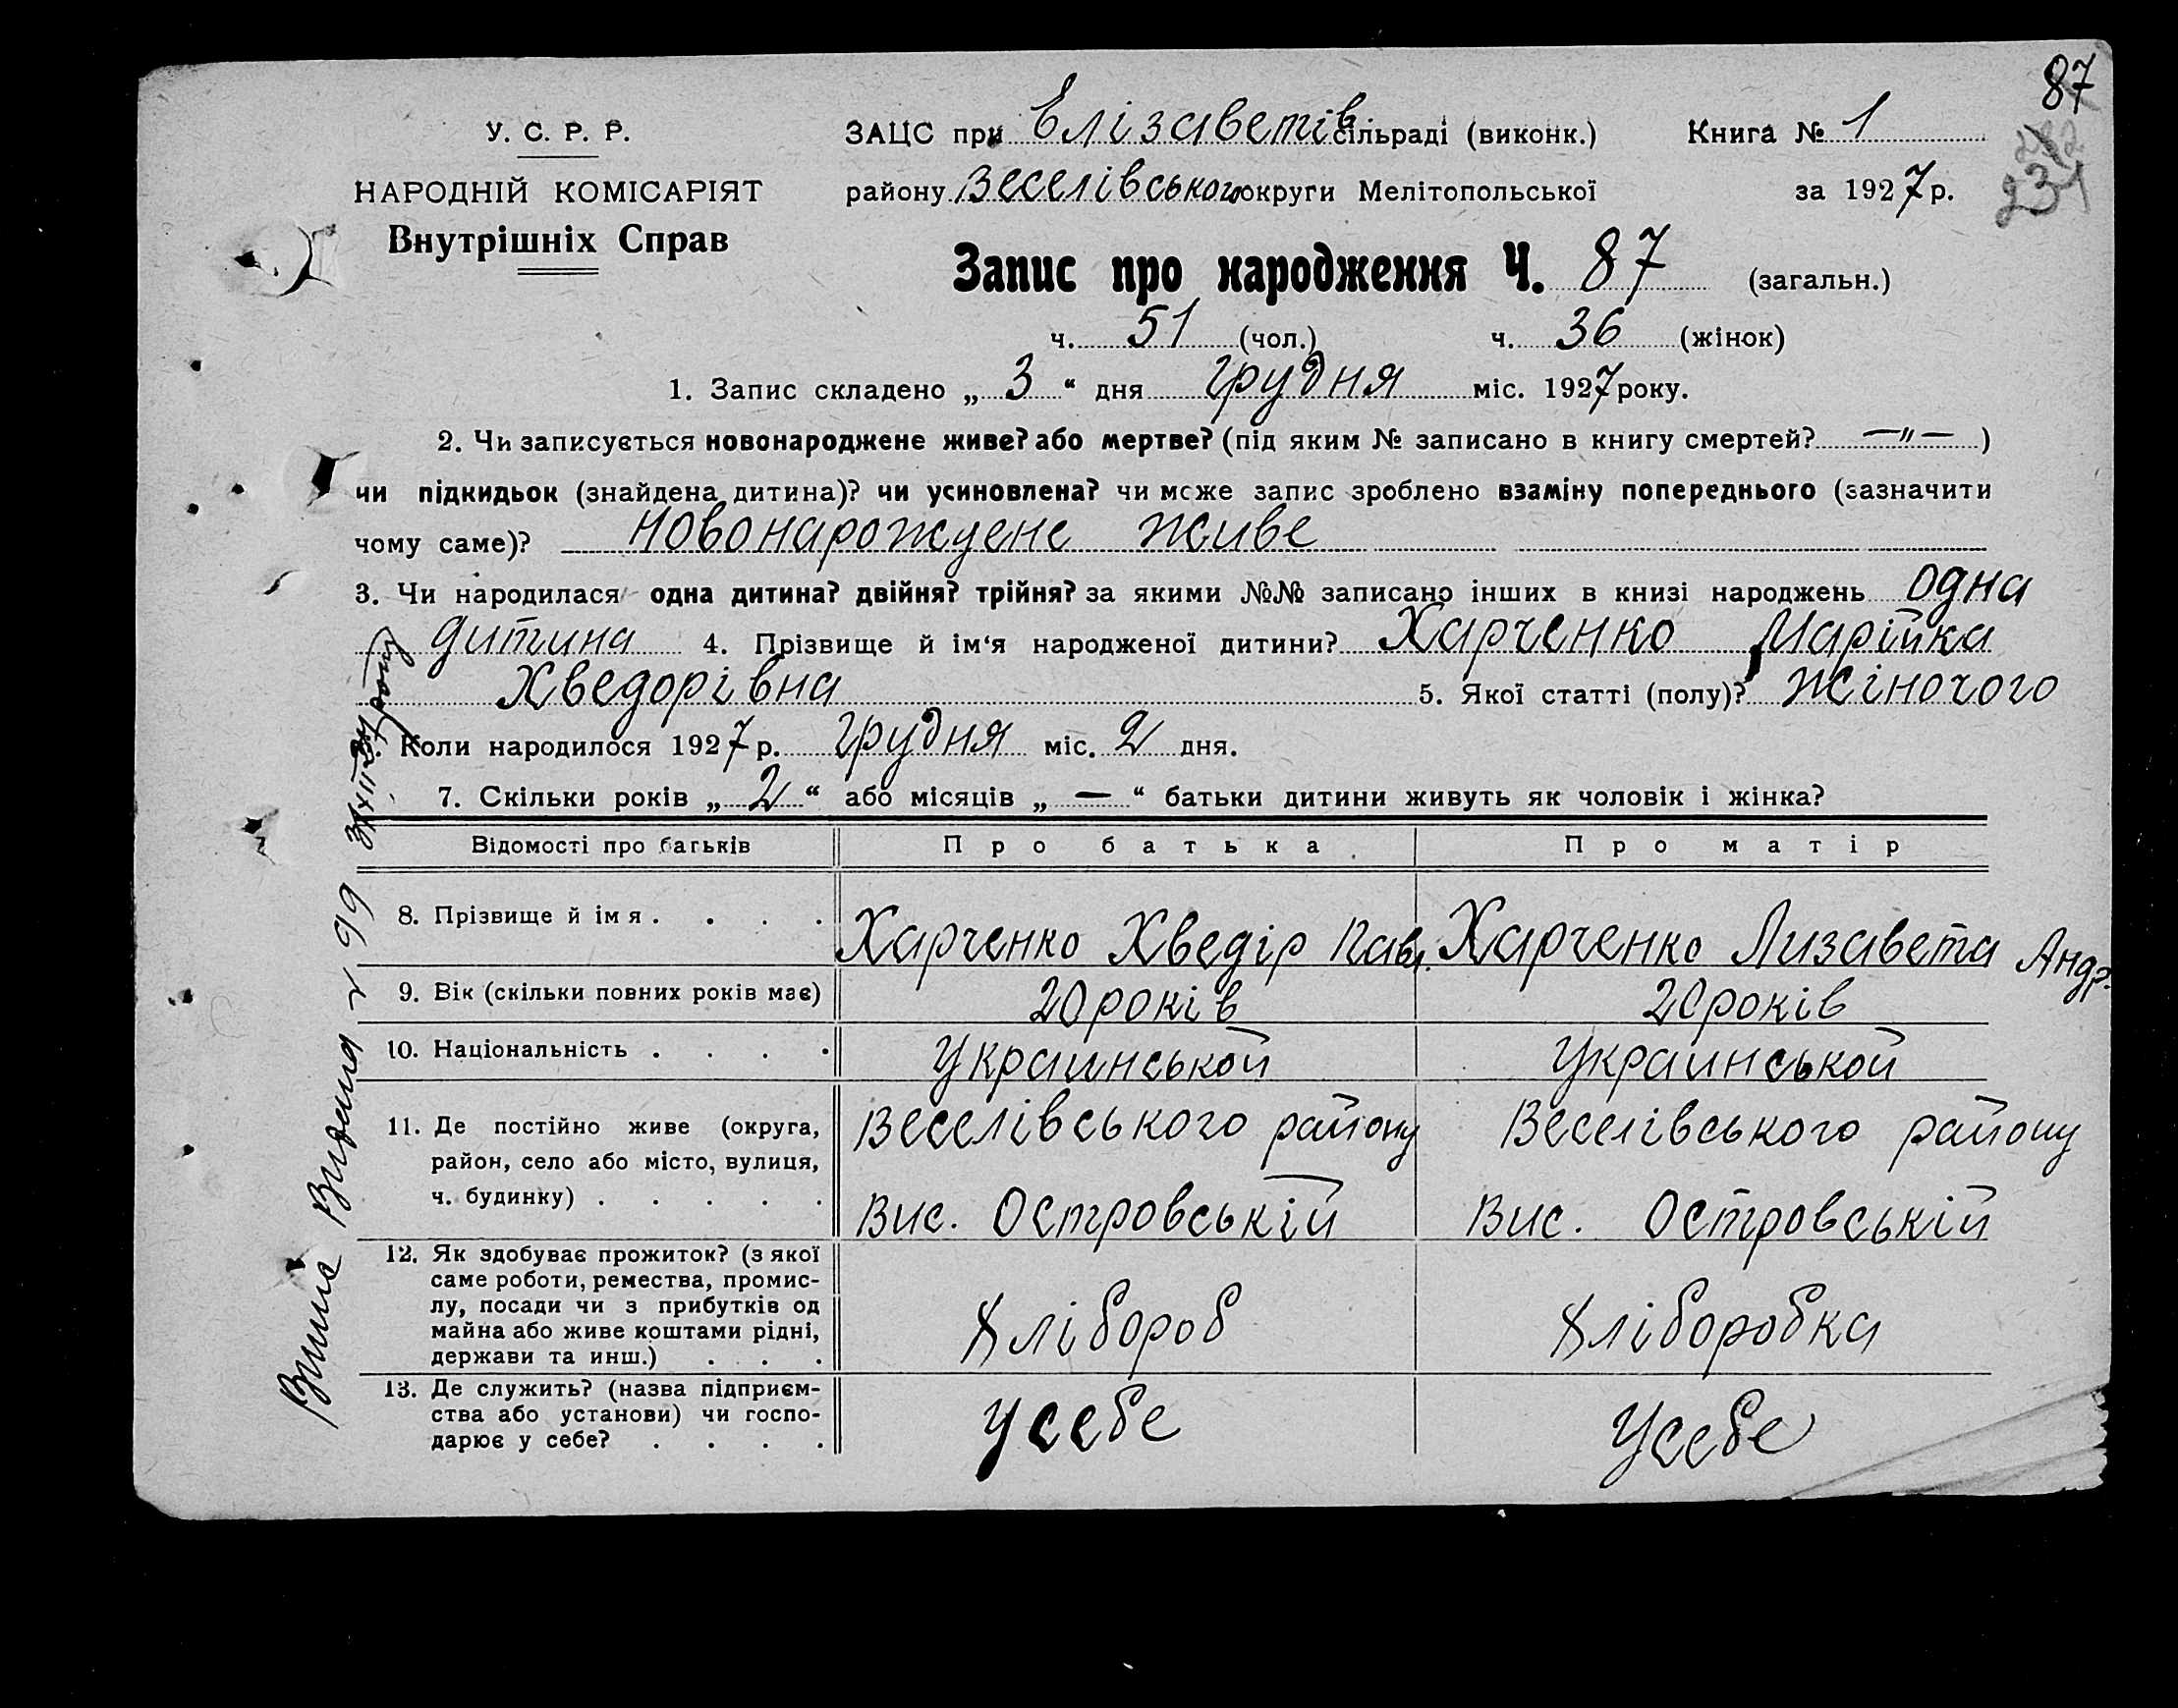 87
У. С. Р. Р.
ЗАЦС при Елізаветів сільраді (виконк.) Книга № 1
231
НАРОДНІЙ КОМІСАРІЯТ
району Веселівського округи Мелітопольської за 1927 р.
Внутрішніх Справ
Запис про народження Ч. 87 (загальн.)
ч. 51 (чол.) ч. 36 (жінок)
1. Запис складено „ 3 “ дня грудня міс. 1927 року.
2. Чи записується новонароджене живе? або мертве? (під яким № записано в книгу смертей? —"— )
чи підкидьок (знайдена дитина)? чи усиновлена? чи може запис зроблено взаміну попереднього (зазначити
чому саме)? Новонарождене живе
3. Чи народилася одна дитина? двійня? трійня? за якими №№ записано інших в книзі народжень одна
дитина 4. Прізвище й ім‘я народженої дитини? Харченко Марійка
Хведорівна 5. Якої статті (полу)? Жіночого
Коли народилося 1927 р. грудня міс. 2 дня.
7. Скільки років „ 2 “ або місяців „ — “ батьки дитини живуть як чоловік і жінка?
Відомості про батьків Про батька Про матір
8. Прізвище й імя . . . . Харченко Хведір Пав. Харченко Лизавета Андр.
9. Вік (скільки повних років має) 20 років 20 років
10. Національність . . . . Украинськой Украинськой
11. Де постійно живе (округа, Веселівського району Веселівського району
район, село або місто, вулиця,
ч. будинку) . . . . . Вис. Островській Вис. Островській
12. Як здобуває прожиток? (з якої
саме роботи, ремества, промис-
лу, посади чи з прибутків од
майна або живе коштами рідні, Хлібороб Хліборобка
держави та инш.) . . .
13. Де служить? (назва підприєм-
ства або установи) чи госпо- Усебе Усебе
дарює у себе? . . . .
Видана 99 року